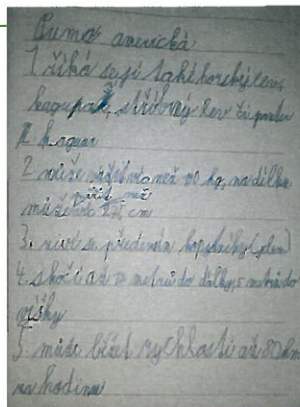 Puma americká
1. říká se jí také horský lev,
stříbrný lev či
2. může vážit víc než 70 kg, na délku
měřit než
může 274 cm
3. živí se především kopytníky (jelen)
4. skočí až 12 metrů do dálky, 5 metrů do
výšky
5. může běžet rychlostí až 80 km
za hodinu